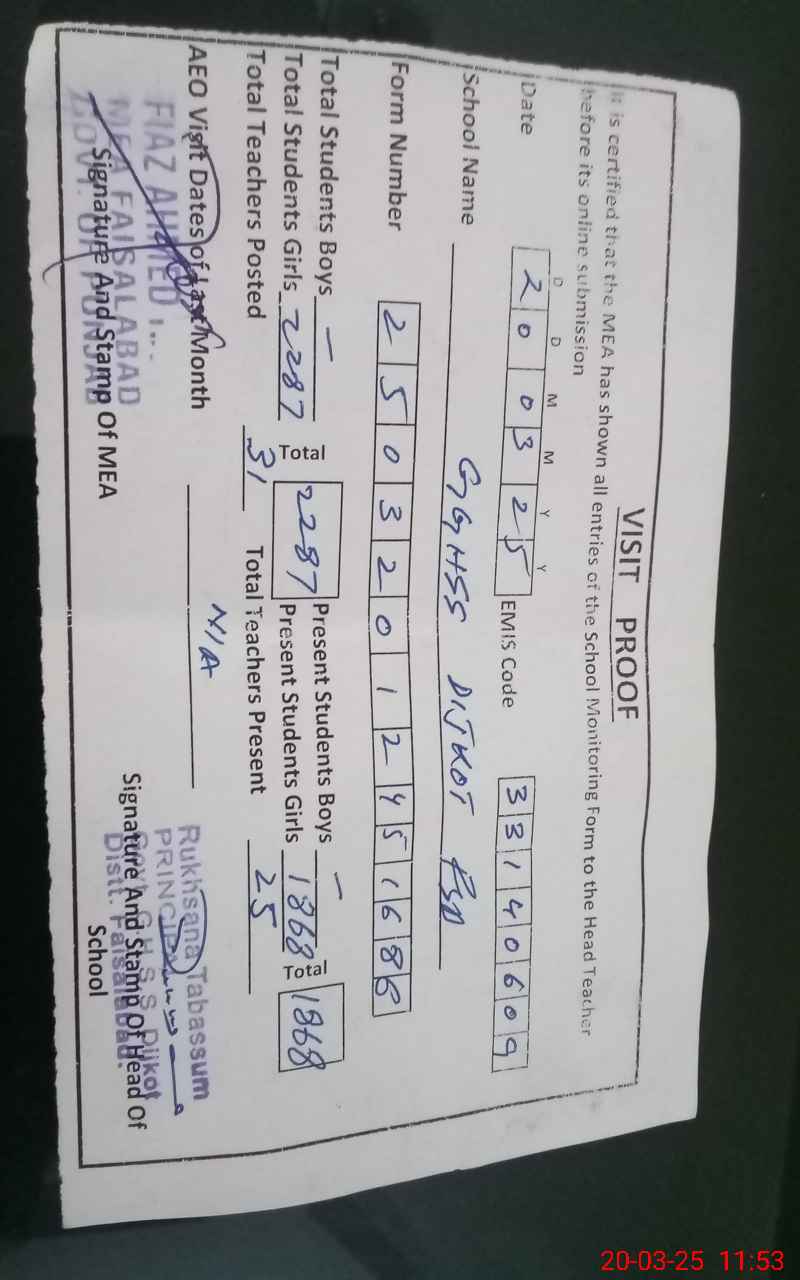 VISIT PROOF
It is certified that the MEA has shown all entries of the School Monitoring Form to the Head Teacher
before its online submission
D D M M Y Y
Date 2 0 0 3 2 5 EMIS Code 3 3 1 4 0 6 0 9
School Name GGHSS DIJKOT FSD
Form Number 2 5 0 3 2 0 1 2 4 5 1 6 8 8
Total Students Boys — Present Students Boys —
Total Students Girls 2287 Total 2287 Present Students Girls 1868 Total 1868
Total Teachers Posted 31 Total Teachers Present 25
AEO Visit Dates of Last Month N/A
FIAZ AHMED
MEA FAISALABAD
GOVT. OF PUNJAB
Signature And Stamp Of MEA
Rukhsana Tabassum
PRINCIPAL
Govt. G.H.S.S Dijkot
Distt. Faisalabad.
Signature And Stamp Of Head Of
School
20-03-25 11:53